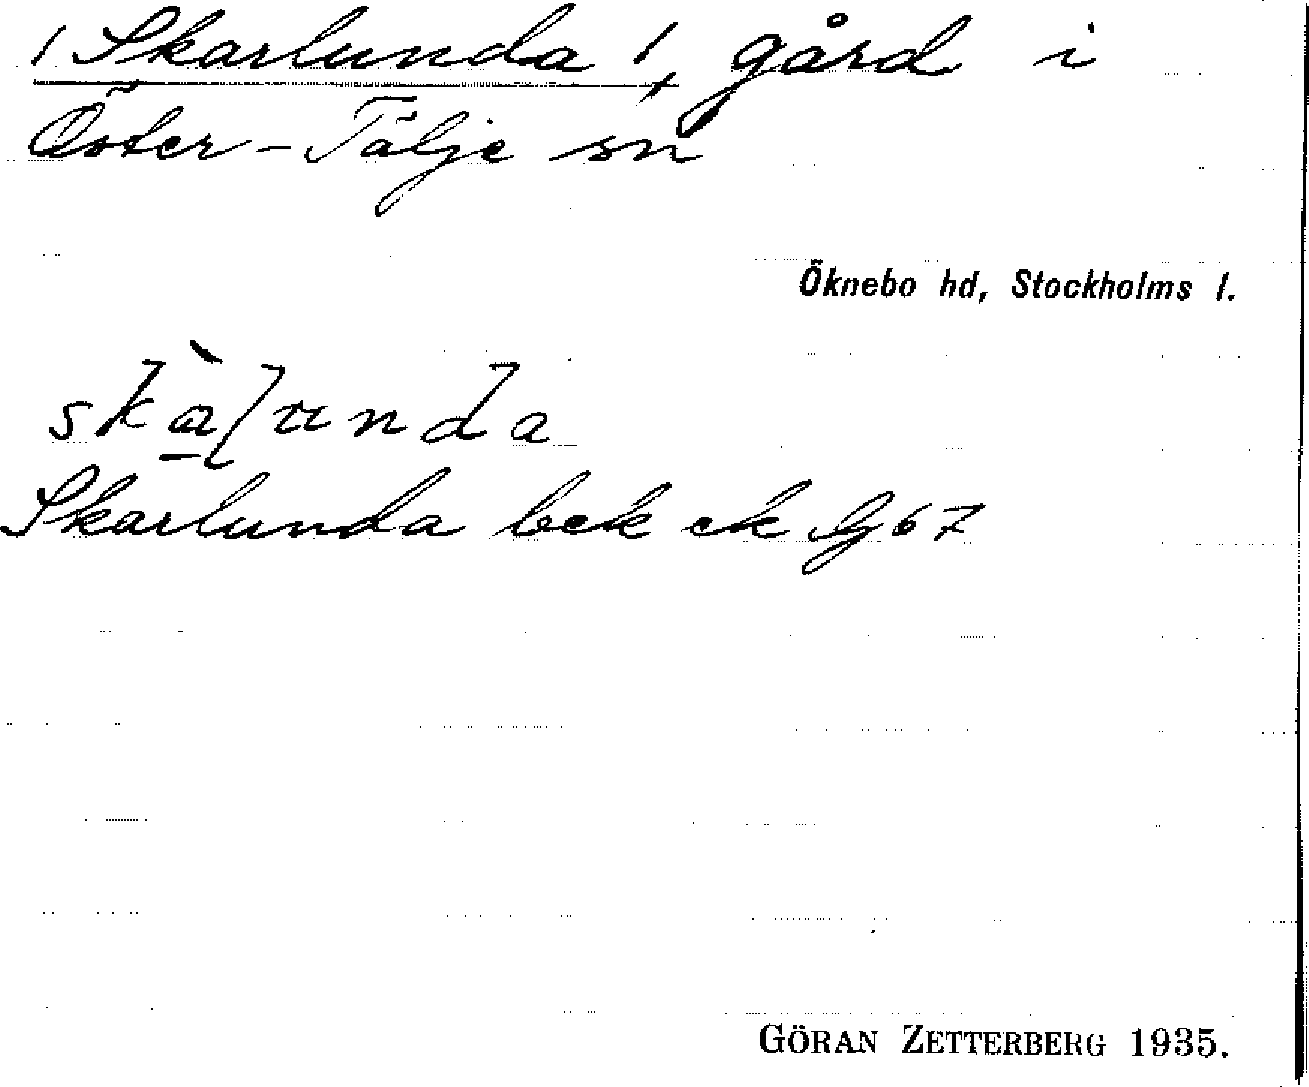 / Skarlunda /, gård i
Öster-Tälje sn
Öknebo hd, Stockholms l.
skàlunda
Skarlunda bek ek bg 67
GÖRAN ZETTERBERG 1935.